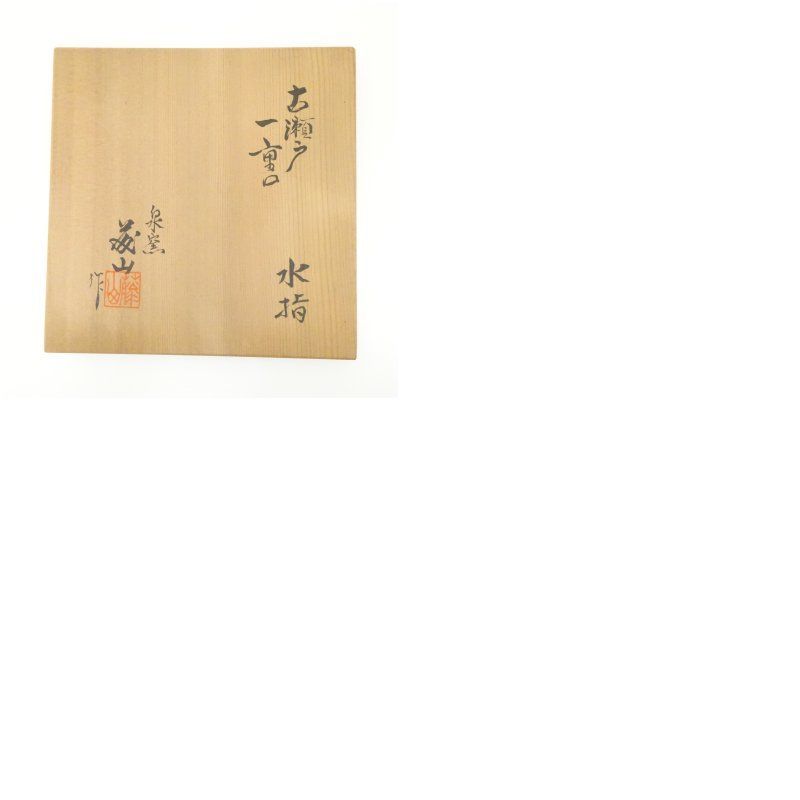 古瀬戸
一重口
水指
泉窯
茂山
作